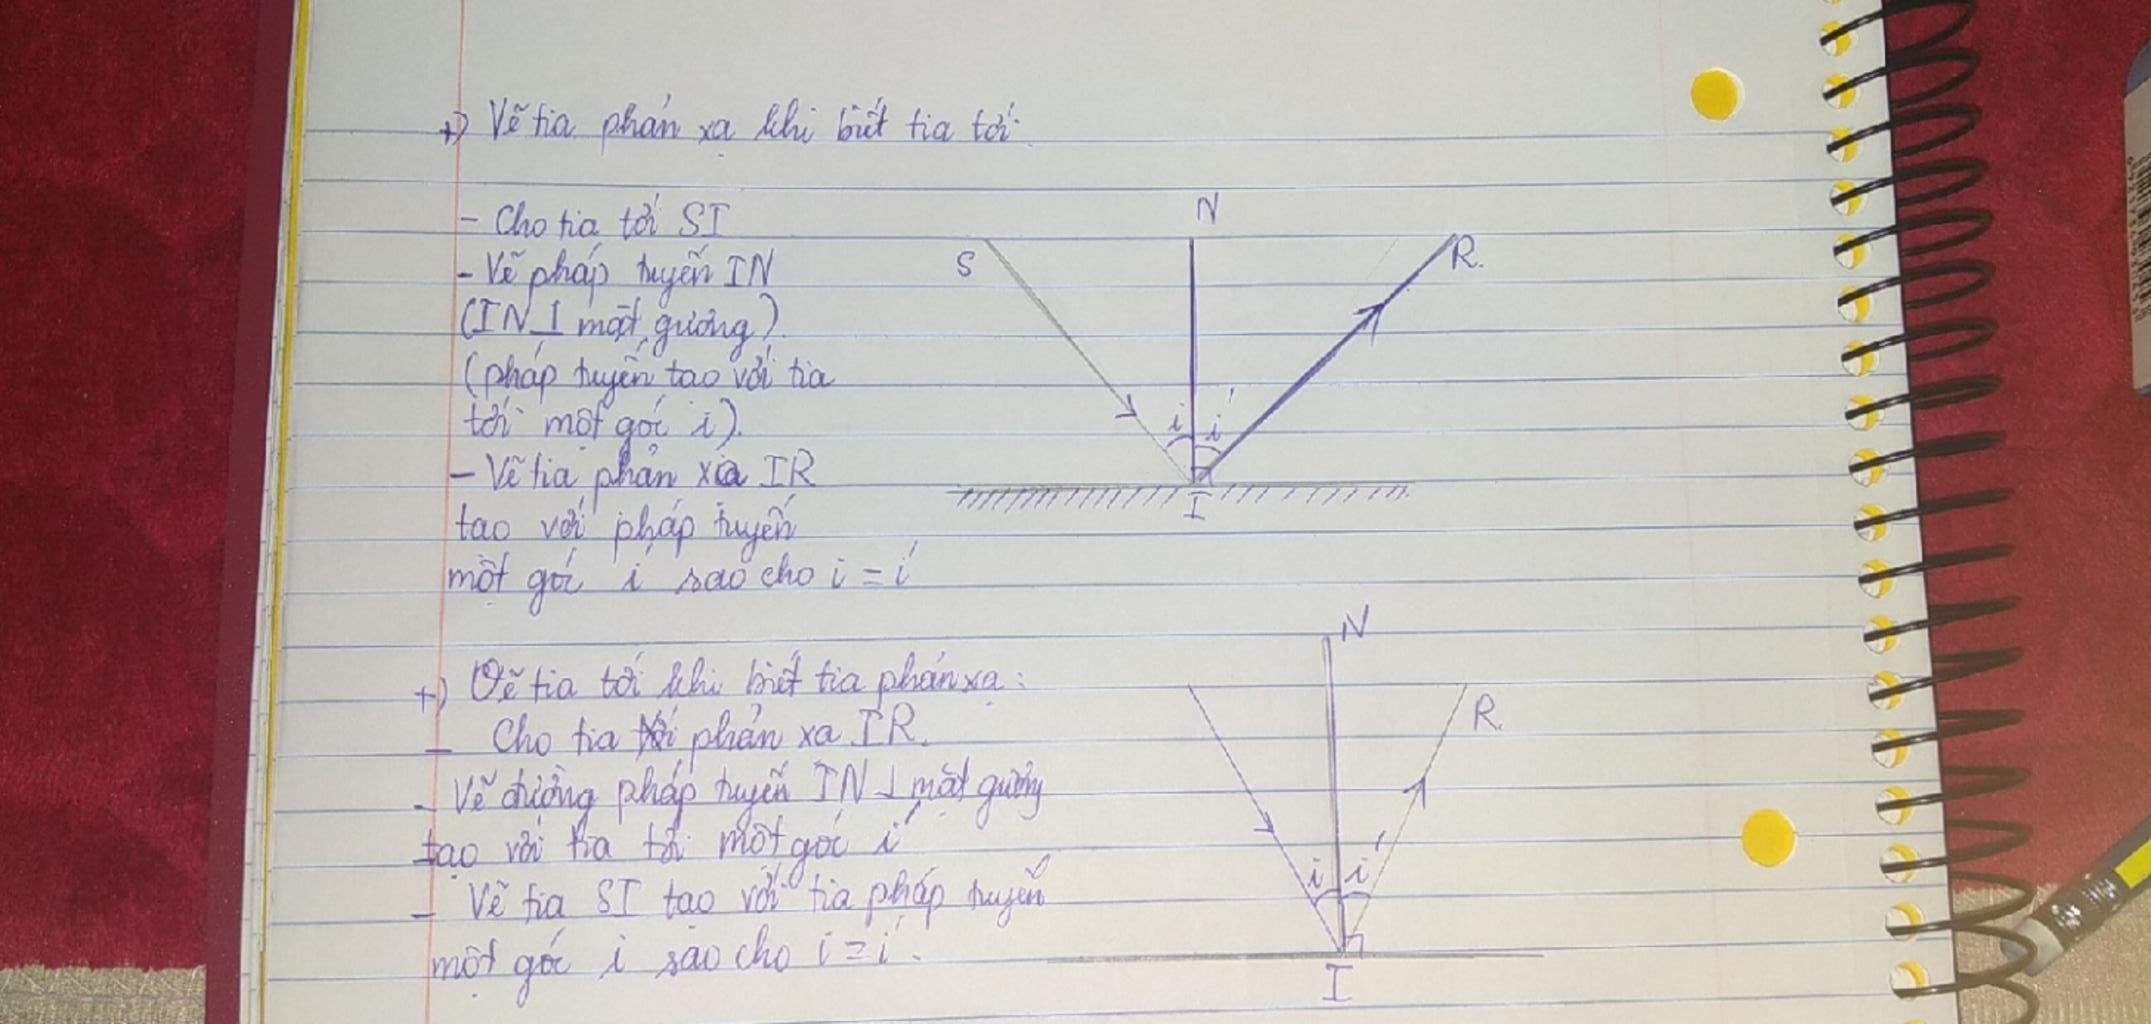 +) Vẽ tia phản xạ khi biết tia tới.
- Cho tia tới SI
- Vẽ pháp tuyến IN
(IN ⊥ mặt gương)
(pháp tuyến tạo với tia
tới một góc i).
- Vẽ tia phản xạ IR
tạo với pháp tuyến
một góc i' sao cho i = i'
N
S
R.
i
i'
I
+) Vẽ tia tới khi biết tia phản xạ:
- Cho tia phản xạ IR.
- Vẽ đường pháp tuyến IN ⊥ mặt gương
tạo với tia tới một góc i'
- Vẽ tia SI tạo với tia pháp tuyến
một góc i sao cho i = i'.
N
R.
i
i'
I